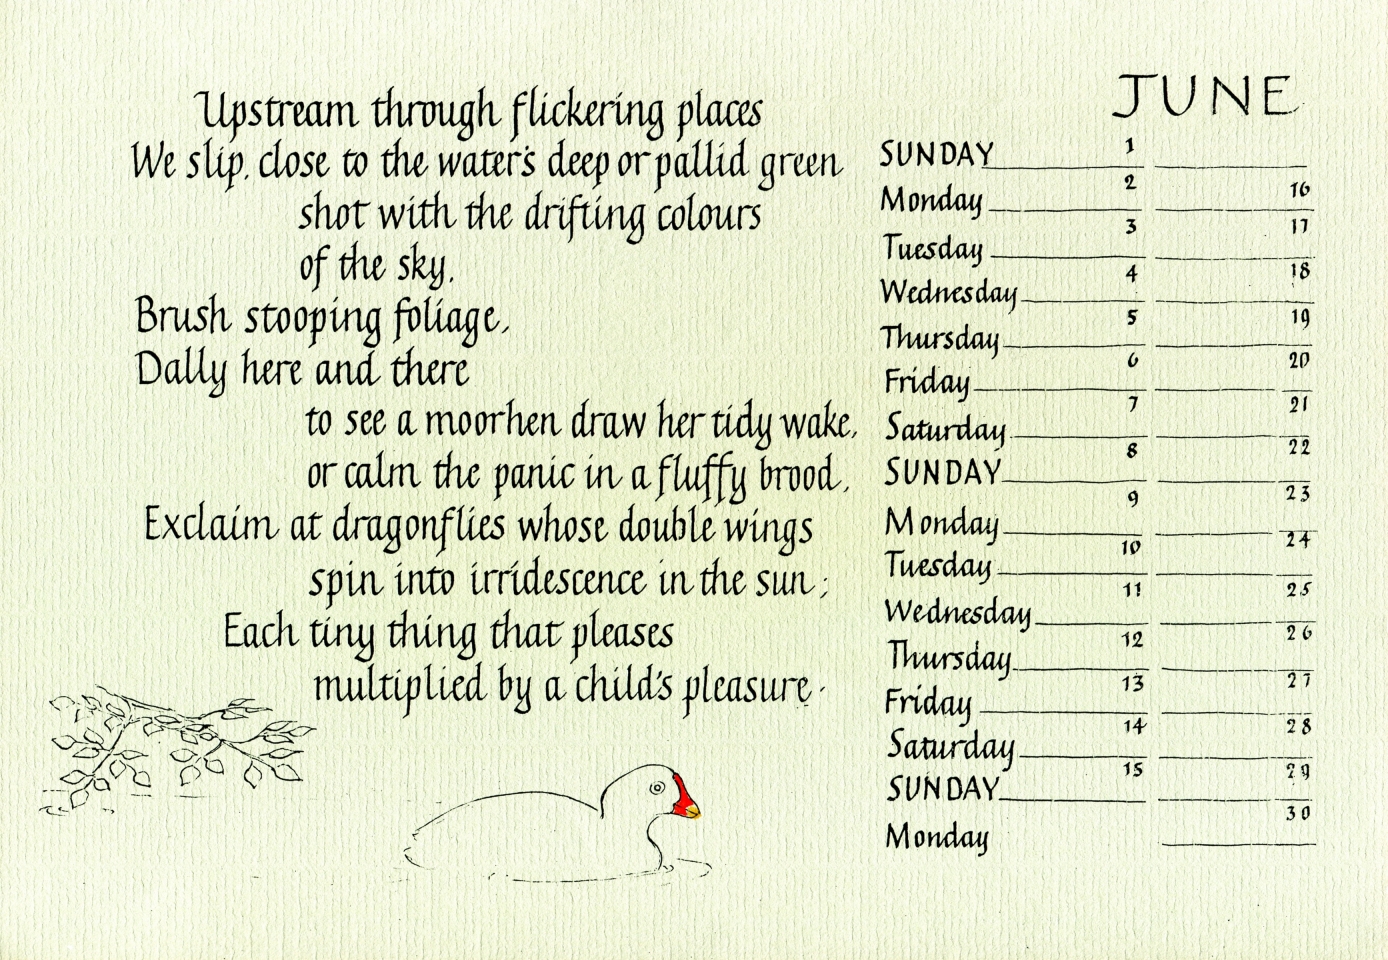 Upstream through flickering places
We slip, close to the water's deep or pallid green
shot with the drifting colours
of the sky,
Brush stooping foliage,
Dally here and there
to see a moorhen draw her tidy wake,
or calm the panic in a fluffy brood,
Exclaim at dragonflies whose double wings
spin into irridescence in the sun;
Each tiny thing that pleases
multiplied by a child's pleasure.
JUNE
SUNDAY 1
Monday 2 16
Tuesday 3 17
Wednesday 4 18
Thursday 5 19
Friday 6 20
Saturday 7 21
SUNDAY 8 22
Monday 9 23
Tuesday 10 24
Wednesday 11 25
Thursday 12 26
Friday 13 27
Saturday 14 28
SUNDAY 15 29
Monday 30